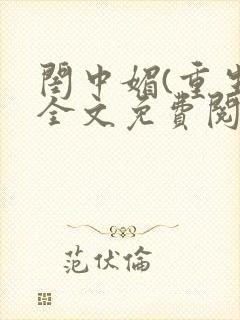 閨中媚(重生
全文免費閱
范伏倫